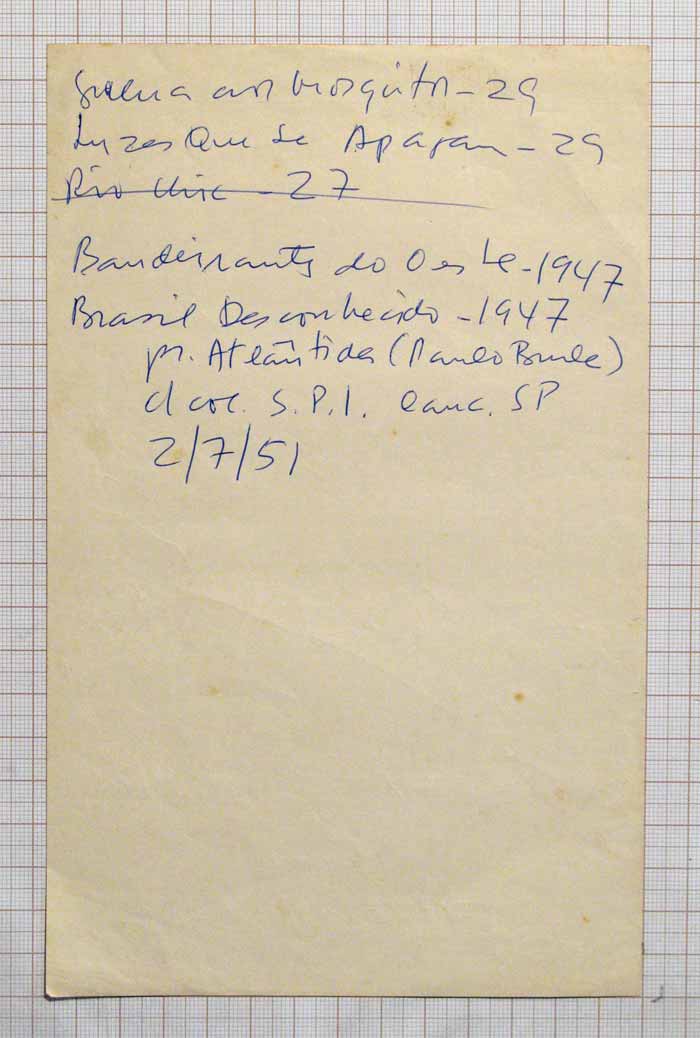 Guerra aos mosquitos - 29
Luzes Que se Apagam - 29
Rio Chic - 27
Bandeirantes do Oeste - 1947
Brasil Desconhecido - 1947
pr. Atlântida (Paulo Burle)
c/ coc. S.P.I. lanc. SP
2/7/51